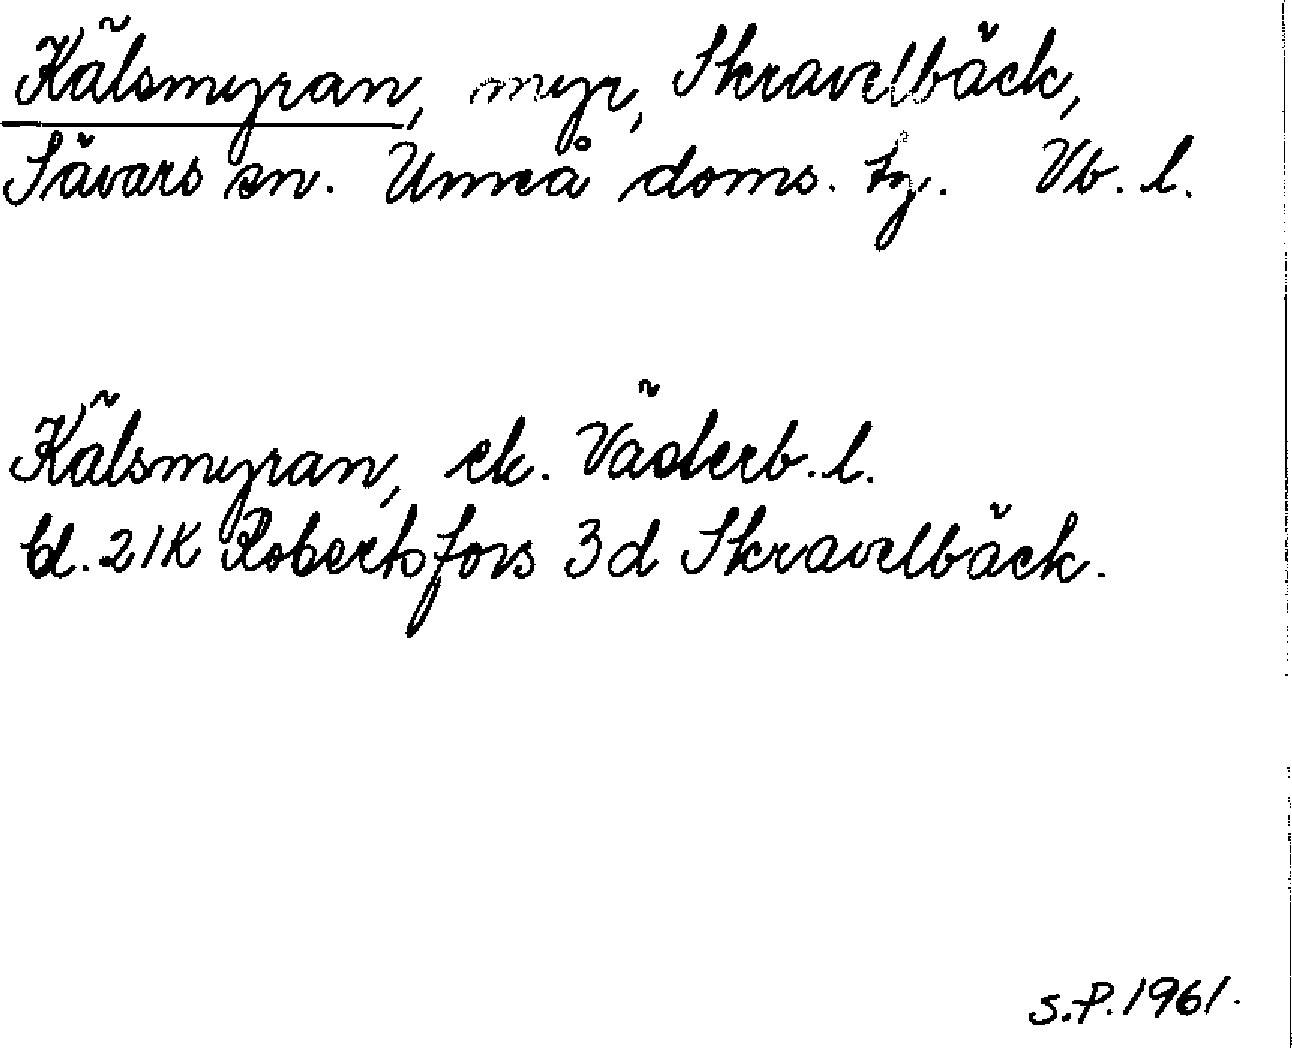 Kälsmyran, myr, Skravelbäck,
Sävars sn. Umeå doms. tg. Vb. l.
Kälsmyran, ek. Väderb. l.
bl. 21K Robertsfors 3d Skravelbäck.
S.P. 1961.